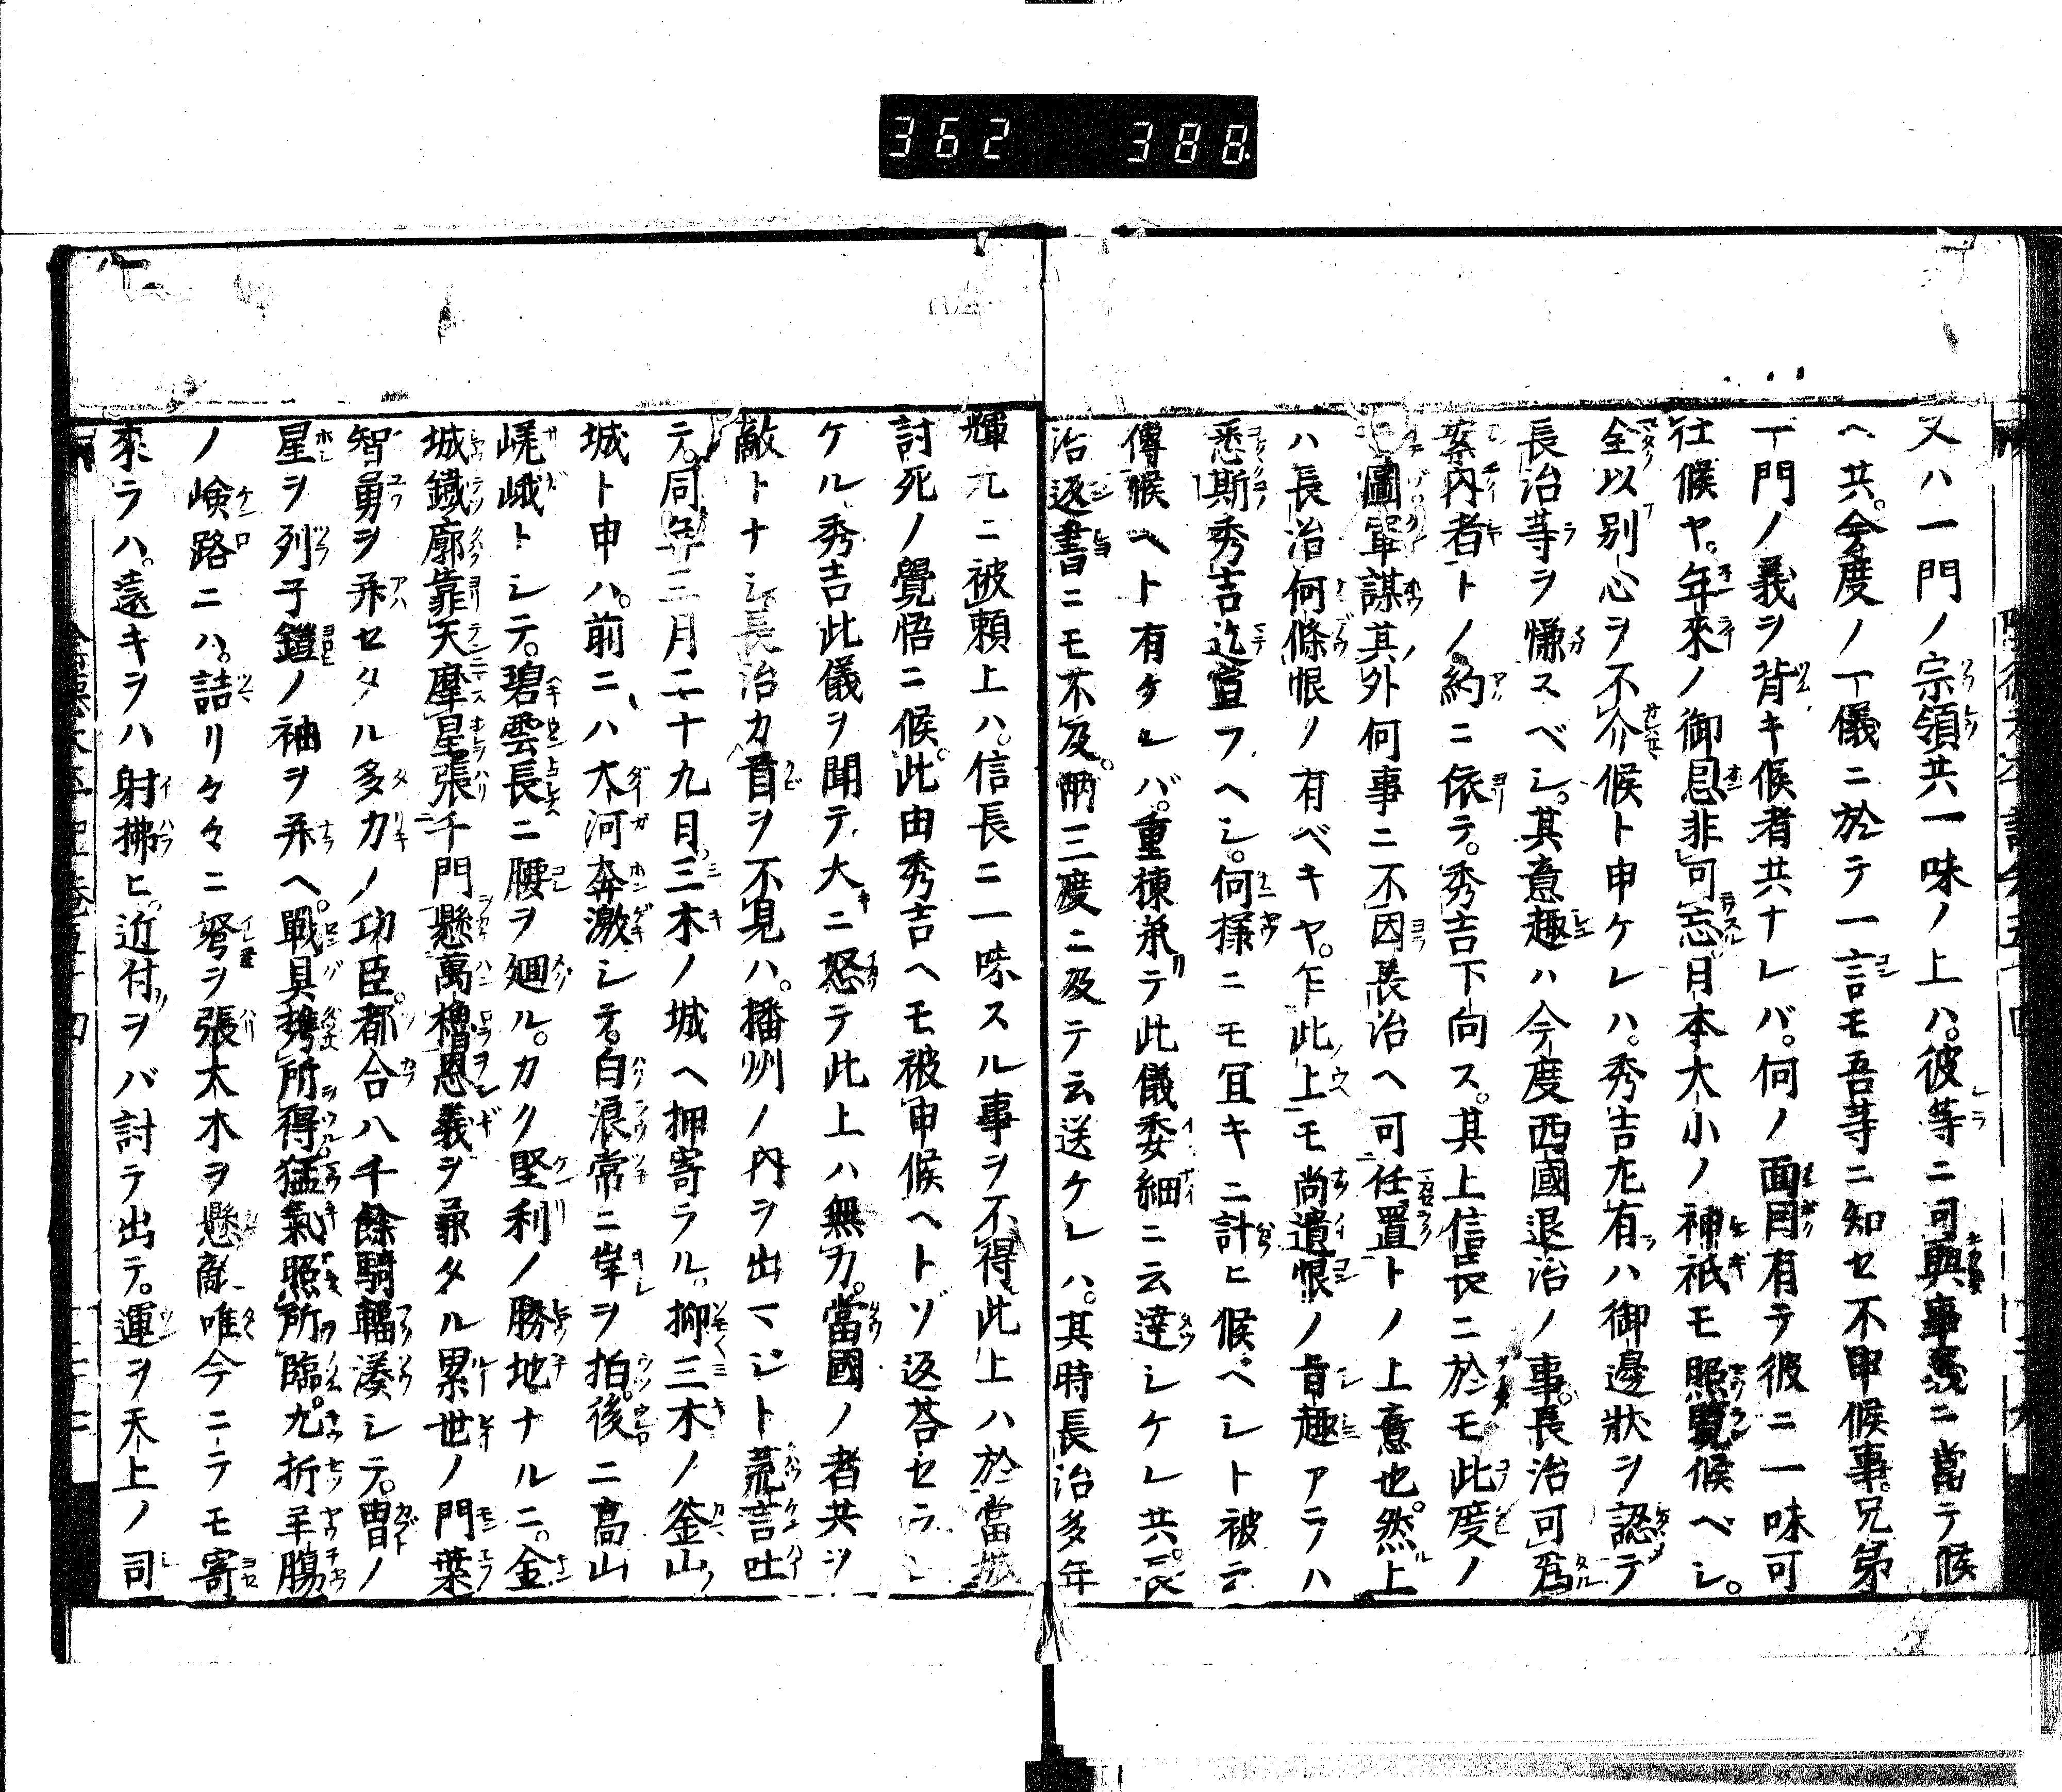 362 388
又ハ一門ノ宗領共一味ノ上ハ。彼等ニ可與事義ニ當テ候
ヘ共。今度ノ一儀ニ於テ一言モ吾等ニ知セ不申候事。兄弟
一門ノ義ヲ背キ候者共ナレバ。何ノ面目有テ彼ニ一味可
仕候ヤ。年來ノ御恩非可忘日本大小ノ神祇モ照覽候ベシ。
全以別心ヲ不介候ト申ケレハ。秀吉尤有ハ御邊狀ヲ認テ
長治等ヲ慊スベシ。其意趣ハ今度西國退治ノ事。長治可爲
案内者トノ約ニ依テ。秀吉下向ス。其上信長ニ於モ此度ノ
圖軍謀其外何事ニ不因長治ヘ可任置トノ上意也。然上
ハ長治何條恨ノ有ベキヤ。乍此上モ尚遺恨ノ旨趣アラハ
悉斯秀吉迄宣フヘシ。何樣ニモ宜キニ計ヒ候ベシト被
傳候ヘト有ケレバ。重棟承テ此儀委細ニ云達シケレ共。長
治返書ニモ不及。兩三度ニ及テ云送ケレハ。其時長治多年
輝元ニ被頼上ハ。信長ニ一味スル事ヲ不得此上ハ於當城
討死ノ覺悟ニ候。此由秀吉ヘモ被申候ヘトゾ返答セラレ
ケル秀吉此儀ヲ聞テ大ニ怒テ此上ハ無力。當國ノ者共ヲ
敵トナシ。長治カ首ヲ不見ハ。播州ノ内ヲ出マジト荒言吐
テ。同年三月二十九日。三木ノ城ヘ押寄ラル。抑三木ノ釜山
城ト申ハ。前ニハ大河奔激シテ。白浪常ニ岸ヲ拍。後ニ高山
嵯峨トシテ。碧雲長ニ腰ヲ廻ル。カク堅利ノ勝地ナルニ。金
城鐵廓靠天摩星張千門懸萬櫓恩義ヲ兼タル累世ノ門葉
智勇ヲ并セタル多力ノ功臣。都合八千餘騎輻湊シテ。冑ノ
星ヲ列子鎧ノ袖ヲ并ヘ。戰具携所得猛氣照所臨。九折羊腸
ノ嶮路ニハ。詰リ々々ニ弩ヲ張大木ヲ懸敵唯今ニテモ寄
來ラハ。遠キヲハ射拂ヒ。近付ヲバ討テ出テ。運ヲ天上ノ司